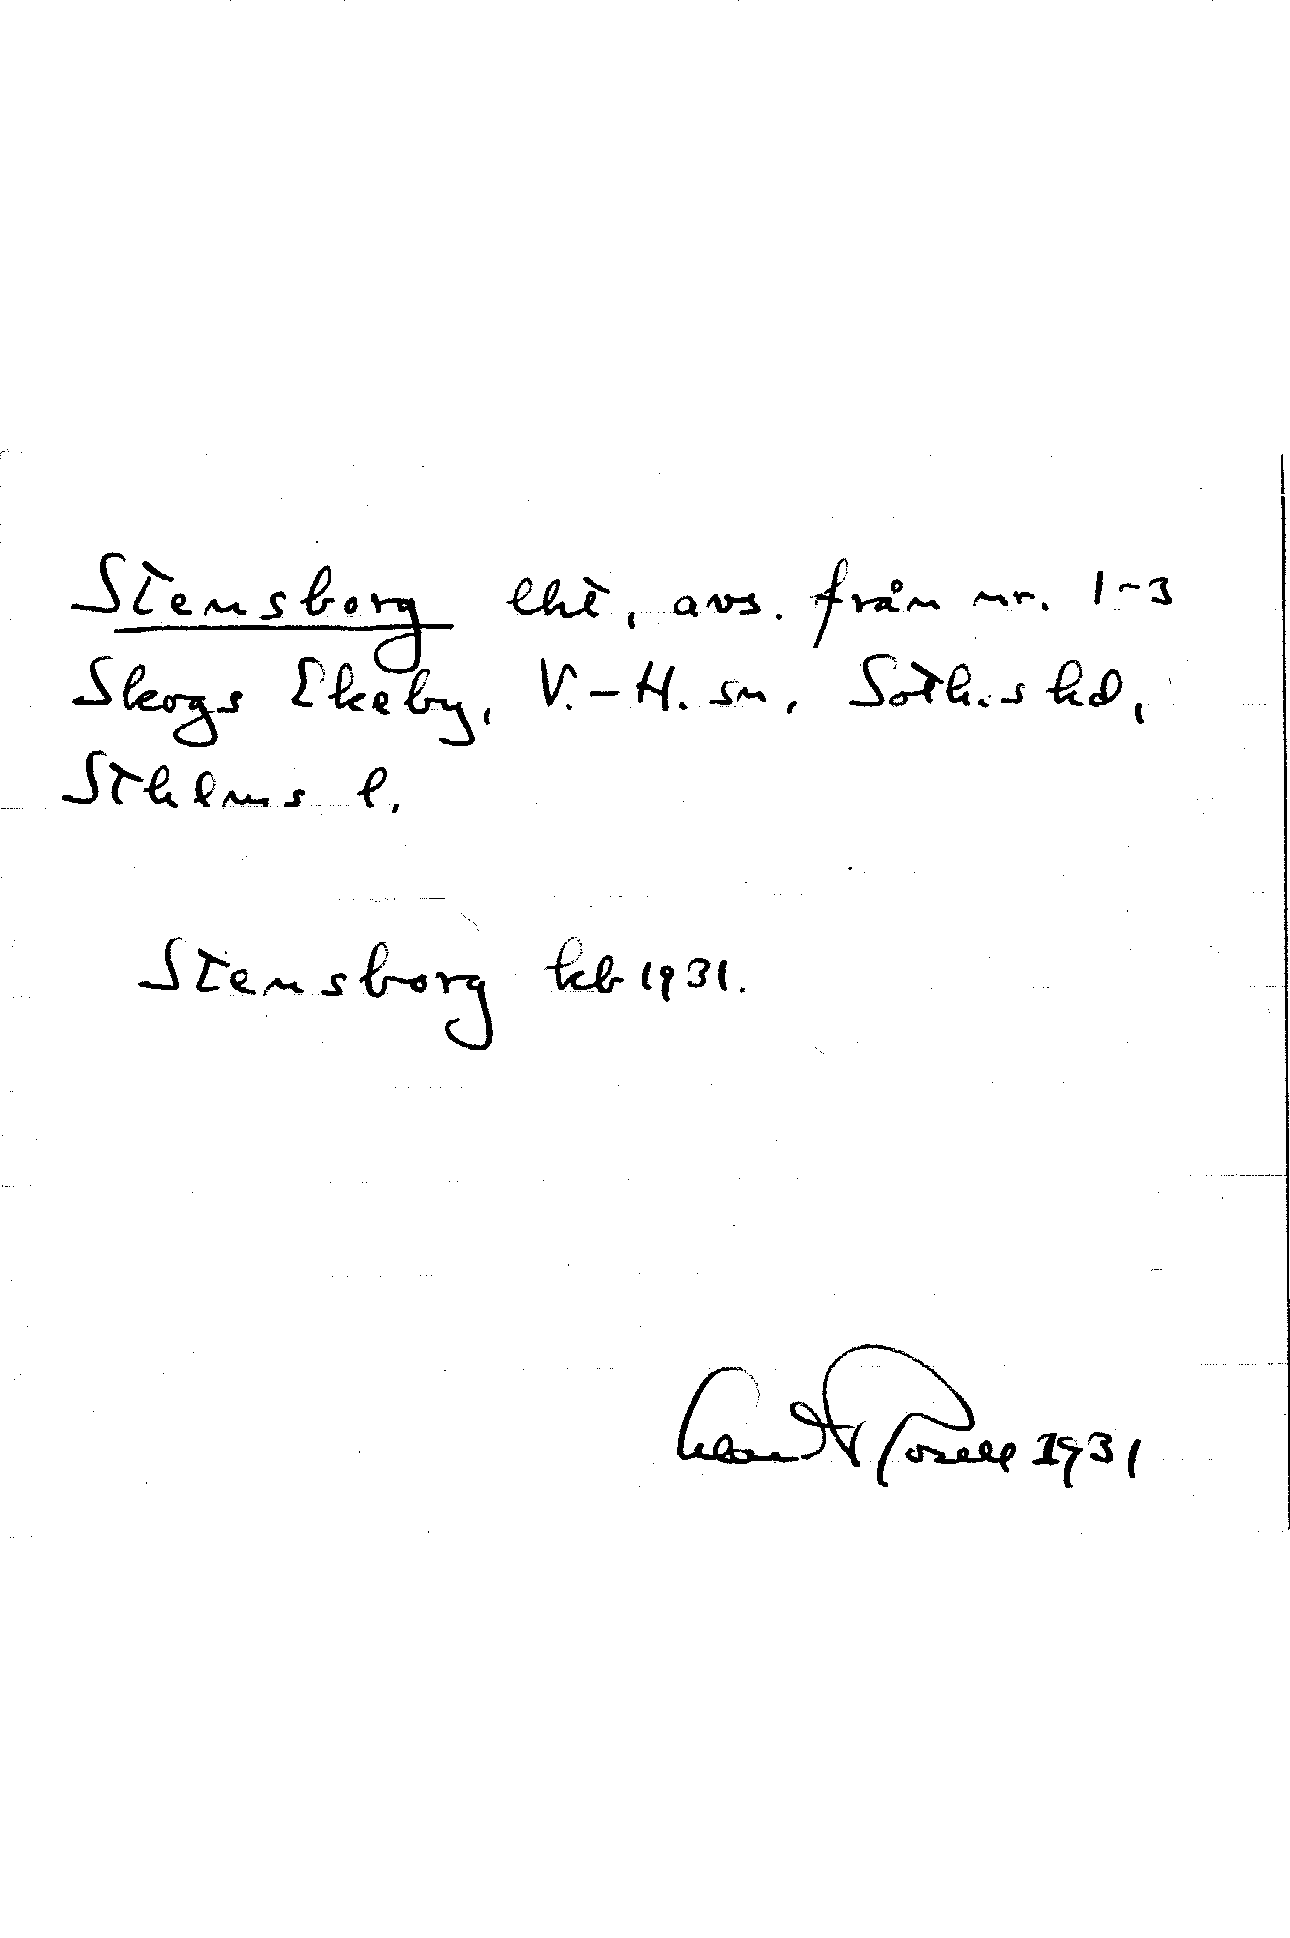 Stensborg lht, avs. från nr. 1-3
Skogs Ekeby, V.-H. sn, Soth.s hd,
Sthlms l.
Stensborg kb 1931.
Rosell 1931